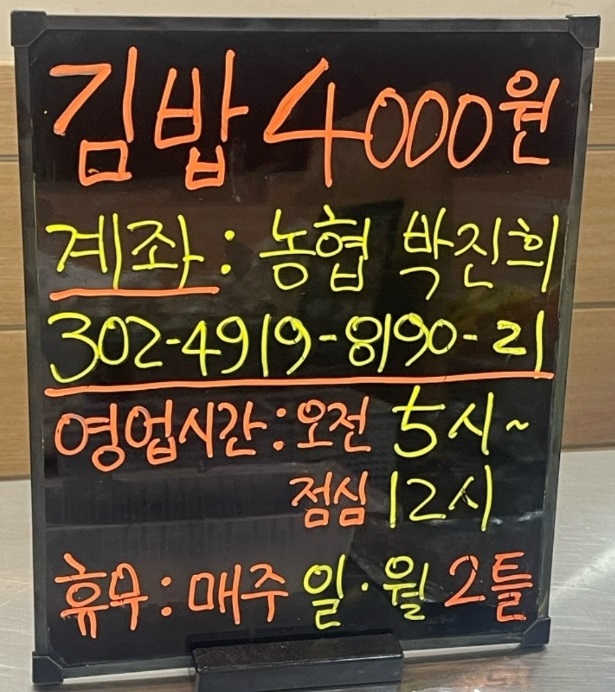 김밥 4000원
계좌: 농협 박진희
302-4919-8190-21
영업시간: 오전 5시~
점심 12시
휴무: 매주 일·월 2틀